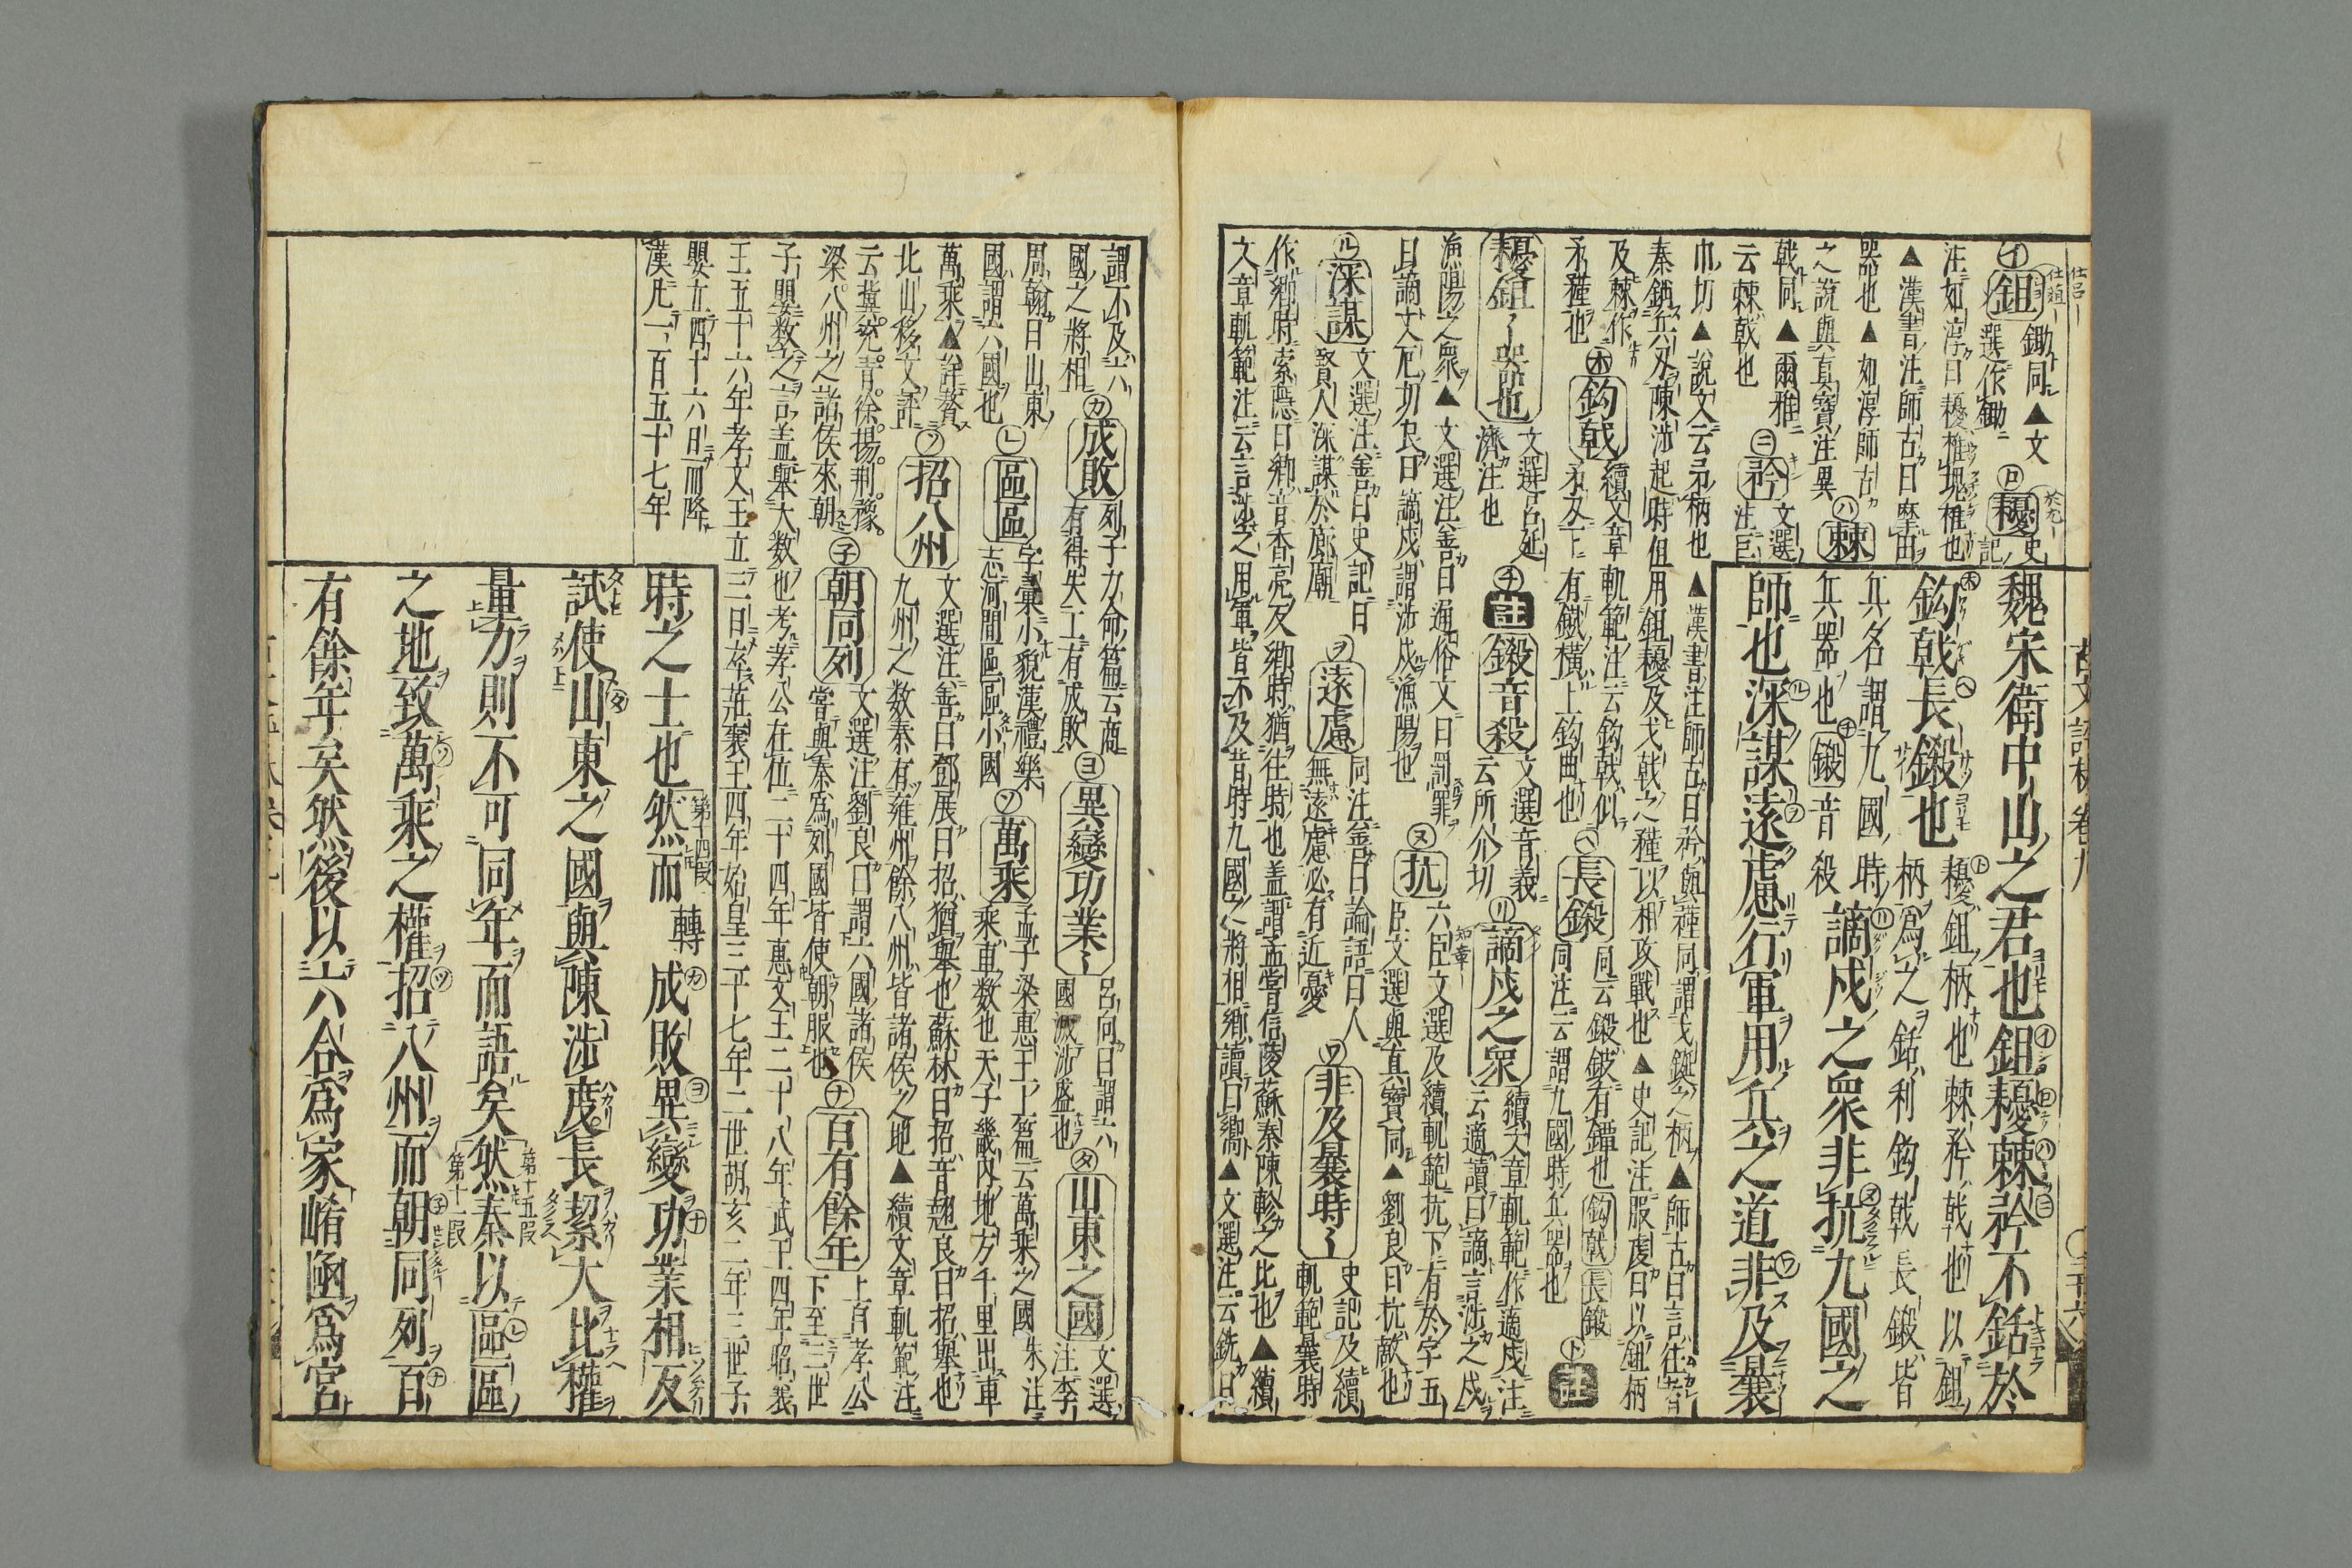 魏宋衛中山之君也鉏耰棘矜不銛於
鈎戟長鎩也
耰鉏柄也棘矜戟也以鉏
柄爲之銛利鈎戟長鎩皆
兵名謂九國時
兵器也鎩音殺
謫戍之衆非抗九國之
師也深謀遠慮行軍用兵之道非及曩
鉏
鋤同▲文
選作鋤
耰
史
記
注如淳曰耰椎塊椎也
▲漢書注師古曰摩田
器也▲如淳師古
之說與真寶注異
棘
戟同▲爾雅
云棘戟也
矜
文選
注巨
巾切▲說文云矛柄也▲漢書注師古曰矜與䅖同謂戈鋋之柄▲師古曰言往昔
秦銷兵刃陳涉起時但用鉏耰及戈戟之䅖以相攻戰也▲史記注服虔曰以鉏柄
及棘作
矛䅖也
鈎戟
續文章軌範注云鈎戟似
矛刃下有鐵橫上鈎曲也
長鎩
同云鎩鈹有鐔也鈎戟長鎩
同注云謂九國時兵器也
註
耰鉏〻器也
文選呂延
濟注也
註
鎩音殺
文選音義
云所介切
謫戍之衆
續文章軌範作適戍注
云適讀曰謫言涉之戍
漁陽之衆▲文選注善曰通俗文曰罰罪
曰謫丈厄切良曰謫戍謂涉戍漁陽也
抗
六臣文選及續軌範抗下有於字五
臣文選與真寶同▲劉良曰抗敵也
深謀
文選注善曰史記曰
賢人深謀於廊廟
遠慮
同注善曰論語曰人
無遠慮必有近憂
非及曩時〻
史記及續
軌範曩時
作鄉時索隱曰鄉音香亮反鄉時猶往時也蓋謂孟嘗信陵蘇秦陳軫之比也▲續
文章軌範注云言涉之用軍皆不及昔時九國之將相鄉讀曰嚮▲文選注云銑曰
謂不及六
國之將相
成敗
列子力命篇云商
有得失工有成敗
異變功業〻
呂向曰謂六
國滅涉盛也
山東之國
文選
注李
周翰曰山東
國謂六國也
區區
字彙小貌漢禮樂
志河間區區小國
萬乘
孟子梁惠王上篇云萬乘之國朱注
乘車数也天子畿內地方千里出車
萬乘▲說詳贅
北山移文評
招八州
文選注善曰鄧展曰招猶舉也蘇林曰招音翹良曰招舉也
九州之数秦有雍州餘八州皆諸侯之地▲續文章軌範注
云冀兗青徐揚荊豫
梁八州之諸侯來朝
朝同列
文選注劉良曰謂六國諸侯
嘗與秦爲列國皆使朝服也
百有餘年
上自孝公
下至三世
子嬰数之言蓋舉大数也考孝公在位二十四年惠文王二十八年武王四年昭襄
王五十六年孝文王立三日卒莊襄王四年始皇三十七年二世胡亥二年三世子
嬰立四十六日而降
漢凡一百五十七年
時之士也然而轉成敗異變功業相反
試使山東之國與陳涉度長絜大比權
量力則不可同年而語矣然秦以區區
之地致萬乘之權招八州而朝同列百
有餘年矣然後以六合爲家崤函爲宮